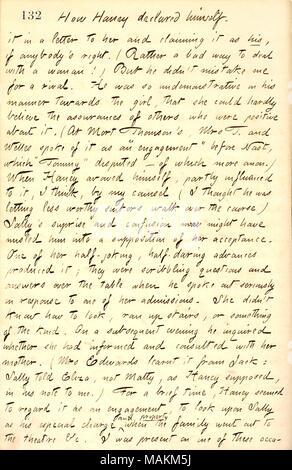 132 How Haney declared himself.
it in a letter to her and claiming it as his,
if anybody's right. (Rather a bad way to deal
with a woman!) But he didn't mistake me
for a rival. He was so undemonstrative in his
manner towards the girl, that she could hardly
believe the assurances of others who were positive
about it. (At Mort Thomson's. Mrs T. and
Welles spoke of it as an "engagement" before Nast,
which "Tommy" disputed — of which more anon.)
When Haney avowed himself, partly influenced
to it, I think, by my counsel (I thought he was
letting less worthy suitors walk over the course)
Sally's suprise and confusion might have
misled him into a supposition of her acceptance.
One of her half-joking, half-daring advances
produced it; they were scribbling questions and
answers over the table when he spoke out seriously
in response to one of her admissions. She didn't
know how to look, ran up stairs, or something
of the kind. On a subsequent evening he inquired
whether she had informed and consulted with her
mother. (Mrs Edwards learnt it from Jack:
Sally told Eliza, not Matty, as Haney supposed,
in his note to me.) For a brief time, Haney seemed
to regard it as an engagement, to look upon Sally
as his especial charge and property when the family went out to
the theatre &c. I was present on one of these occa-
alamy
Image ID: MAKM5J
www.alamy.com